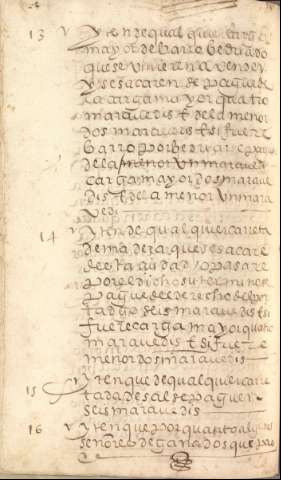 13 yten de qual quier carga
mayor de barro bedriado
que se viniere a vender
y se sacare de pague de
la carga mayor quatro
maravedis E de la menor
dos maravedis E si fuere
barro por bedriar
de la menor un maravedi
carga mayor dos marave
dis E de la menor un mara
vedi
14 yten de qual quier carreta
de madera que se sacare
de esta ciudad o pasare
por el dicho su termino se
pague de derecho del por
tadgo seis maravedis E si
fuere carga mayor quatro
maravedis E si fuere
menor dos maravedis
15 yten que de qual quier carre
tada de sal se paguen
seis maravedis
16 yten que por quanto algunos
señores de ganados que